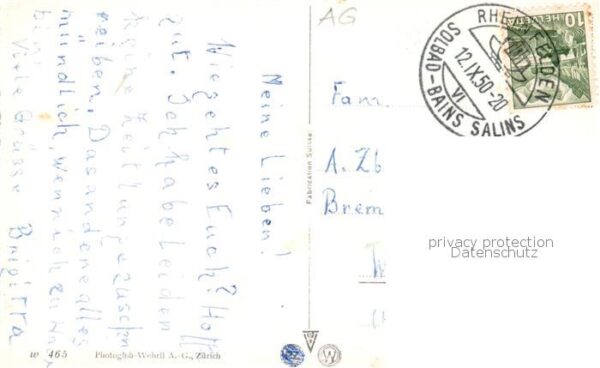 AG
Meine Lieben!
Wie geht es Euch? Hoff
gut. Ich habe leiden
keine Zeit lung zuschr
reiben. Das andere alles
mündlich, wenn ich zu Hau
bin. Viele Grüsse Brigitta
Fam.
A. Zb
Brem
RHEINFELDEN
12.IX.50-20
VI
SOLBAD-BAINS SALINS
HELVETIA
10
Fabrication Suisse
W 465 Photoglob-Wehrli A.-G., Zürich
PZ
W
privacy protection
Datenschutz